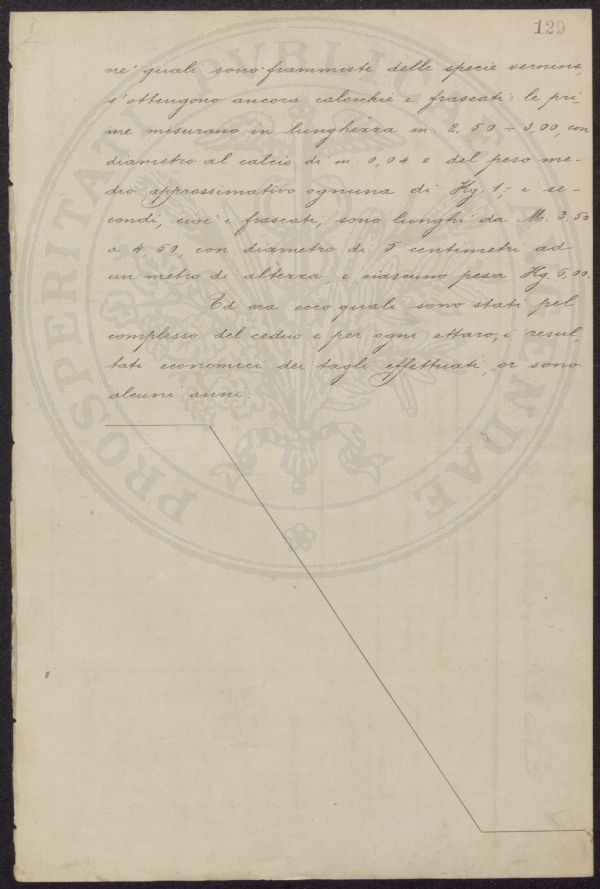 129
ne' quali sono frammiste delle specie vernine,
s'ottengono ancora calocchie e frascati: le pri-
me misurano in lunghezza m. 2,50 ÷ 3,00, con
diametro al calcio di m. 0,04 e del peso me-
dio approssimativo ognuna di Kg. 1,-; i se-
condi, cioè i frascati, sono lunghi da M. 3,50
a 4,50, con diametro di 5 centimetri ad
un metro di altezza, e ciascuno pesa Kg. 5,00.
Ed ora ecco quali sono stati pel
complesso del ceduo e per ogni ettaro, i resul-
tati economici dei tagli effettuati, or sono
alcuni anni.
PROSPERITATI PVBLICAE AVGENDAE